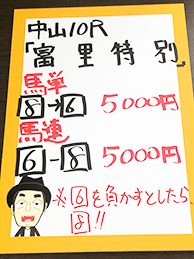 中山10R
「富里特別」
馬単
8→6 5000円
馬連
6-8 5000円
※6を負かすとしたら
8!!